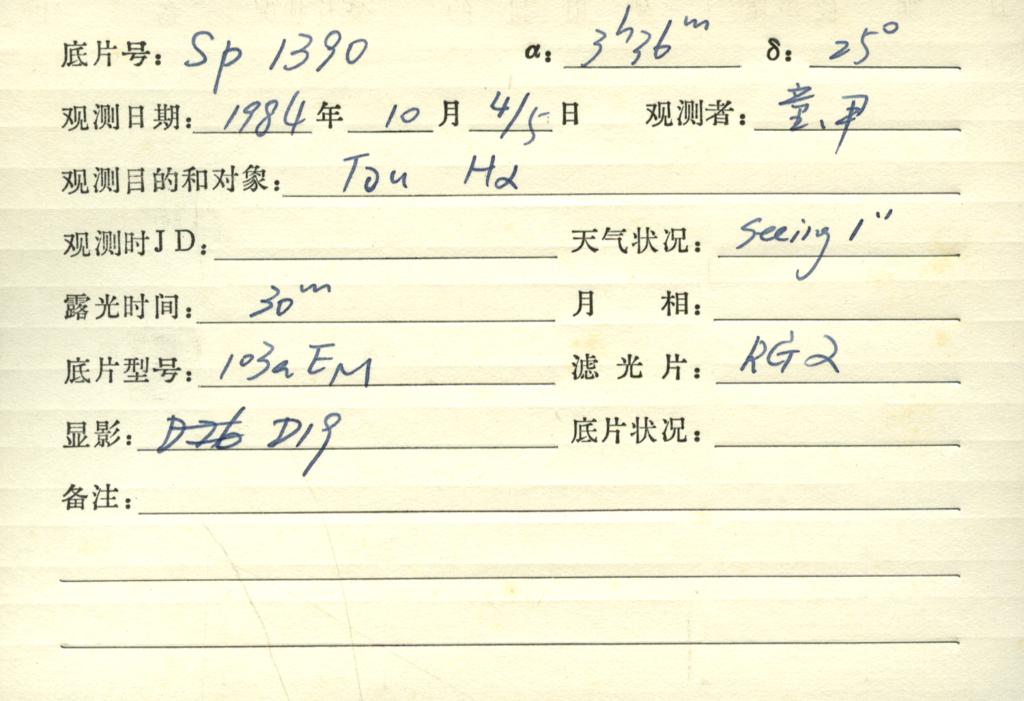 底片号: Sp 1390 α: 3h36m δ: 25°
观测日期: 1984年 10月 4/5日 观测者: 童、甲
观测目的和对象: Tau Hα
观测时JD: 天气状况: Seeing 1"
露光时间: 30m 月 相:
底片型号: 103aEM 滤光片: RG2
显影: D76 D19 底片状况:
备注: